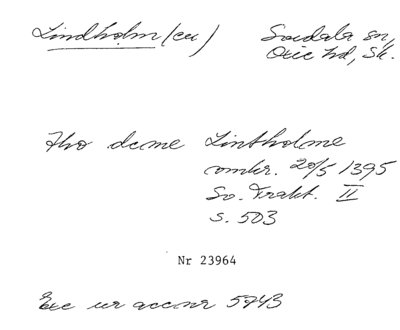 Lindholm (en) Svedala sn,
Oxie hd, Sk.
tho deme Lintholme
omkr. 20/5 1395
Sv. Trakt. II
s. 503
Nr 23964
Exc ur accnr 5743